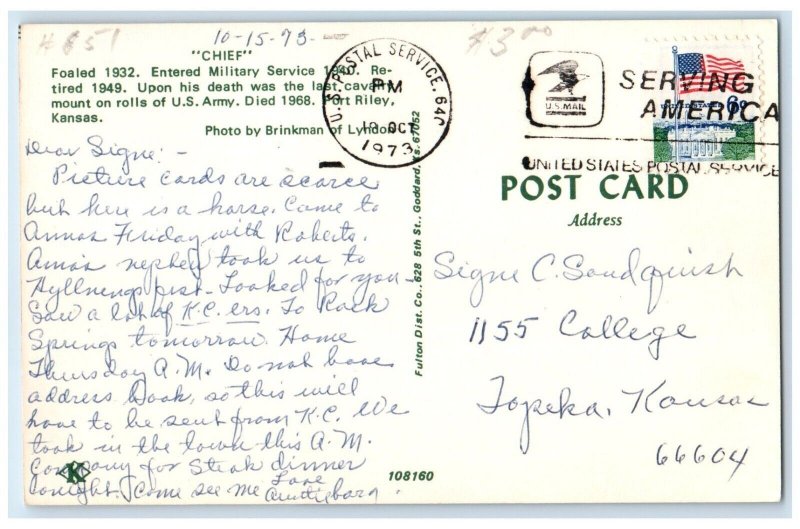 #651
10-15-73-
$3.00
"CHIEF"
Foaled 1932. Entered Military Service 1940. Re-
tired 1949. Upon his death was the last cavalry
mount on rolls of U.S. Army. Died 1968. Fort Riley,
Kansas.
Photo by Brinkman of Lyndon
U.S. POSTAL SERVICE, 640
PM
OCT
1973
U.S. MAIL
SERVING
AMERICA
UNITED STATES POSTAL SERVICE
UNITED STATES 6¢
Dear Signe:-
Picture cards are scarce
but here is a horse. Came to
Annas Friday with Roberts.
Anna's nephew took us to
Hyllnengs fest. Looked for you-
Saw a lot of K.C. ers. To Rock
Springs tomorrow. Home
Thursday A.M. Do not have
address book, so this will
have to be sent from K.C. We
took in the town this A.M.
Company for Steak dinner
tonight. Come see me Love
Auntie
Fulton Dist. Co., 628 5th St., Goddard, Ks. 67052
POST CARD
Address
Signe C. Sandquish
1155 College
Topeka, Kansas
66604
K
108160